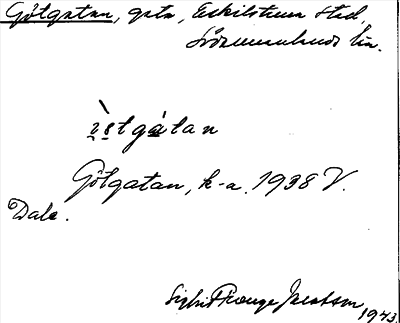 Götgatan, gata, Eskilstuna stad,
Södermanlands län.
Götgatan, k-a. 1938 V.
Dale.
Prange Jacobson
1943